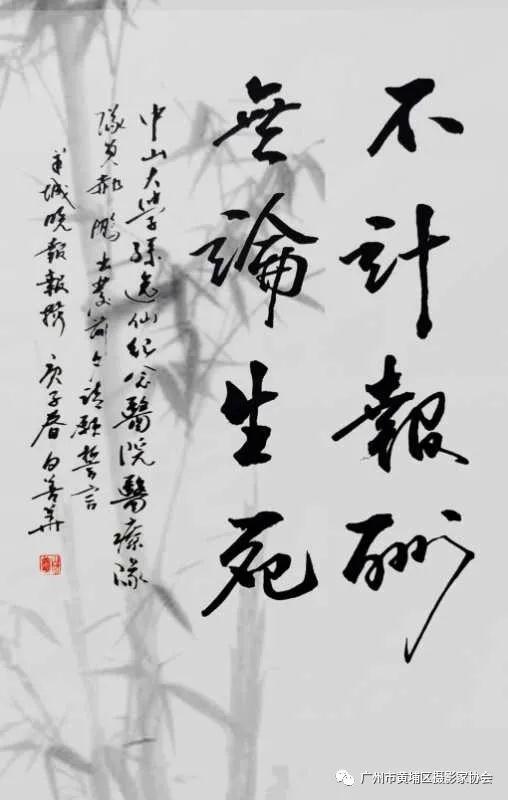 不計報酬
無論生死
中山大學孫逸仙紀念醫院醫療隊
隊員郝鵬出發前今請願誓言
羊城晚報報攜 庚子春 白善華
广州市黄埔区摄影家协会